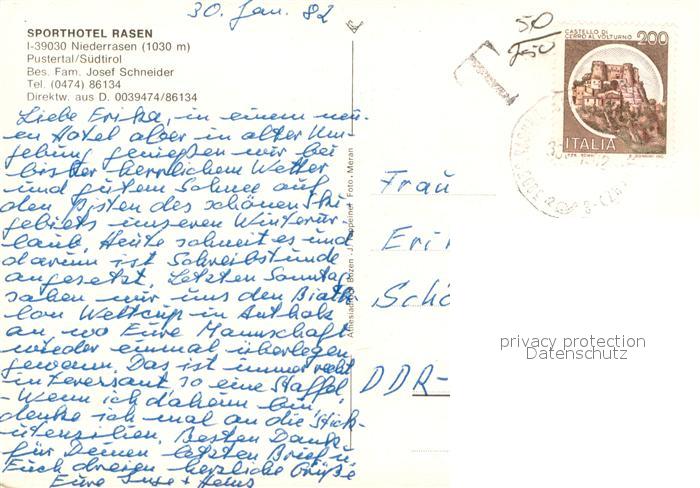 30. Jan. 82
SPORTHOTEL RASEN
I-39030 Niederrasen (1030 m)
Pustertal/Südtirol
Bes. Fam. Josef Schneider
Tel. (0474) 86134
Direktw. aus D. 0039474/86134
Liebe Erika, in einem neu-
en Hotel aber in alter Um-
gebung genießen wir bei
bisher herrlichem Wetter
und gutem Schnee auf
den Pisten des schönen Ski-
gebiets unseren Winterur-
laub. Heute schneit es und
darum ist Schreibstunde
angesetzt. Letzten Sonntag
sahen wir uns den Biath-
lon Weltcup in Antholz
an, wo Eure Mannschaft
wieder einmal überlegen
gewann. Das ist immer recht
interessant, so eine Staffel.
- Wenn ich daheim bin,
denke ich mal an die Stick-
utensilien. Besten Dank
für Deinen letzten Brief u.
Euch dreien herzliche Grüße
Eure Suse + Hans
Athesiadruck Bozen - J. Tappeiner Foto - Meran
T
50
CASTELLO DI
CERRO AL VOLTURNO
200
ITALIA
Frau
Eri
Schö
DDR-
privacy protection
Datenschutz